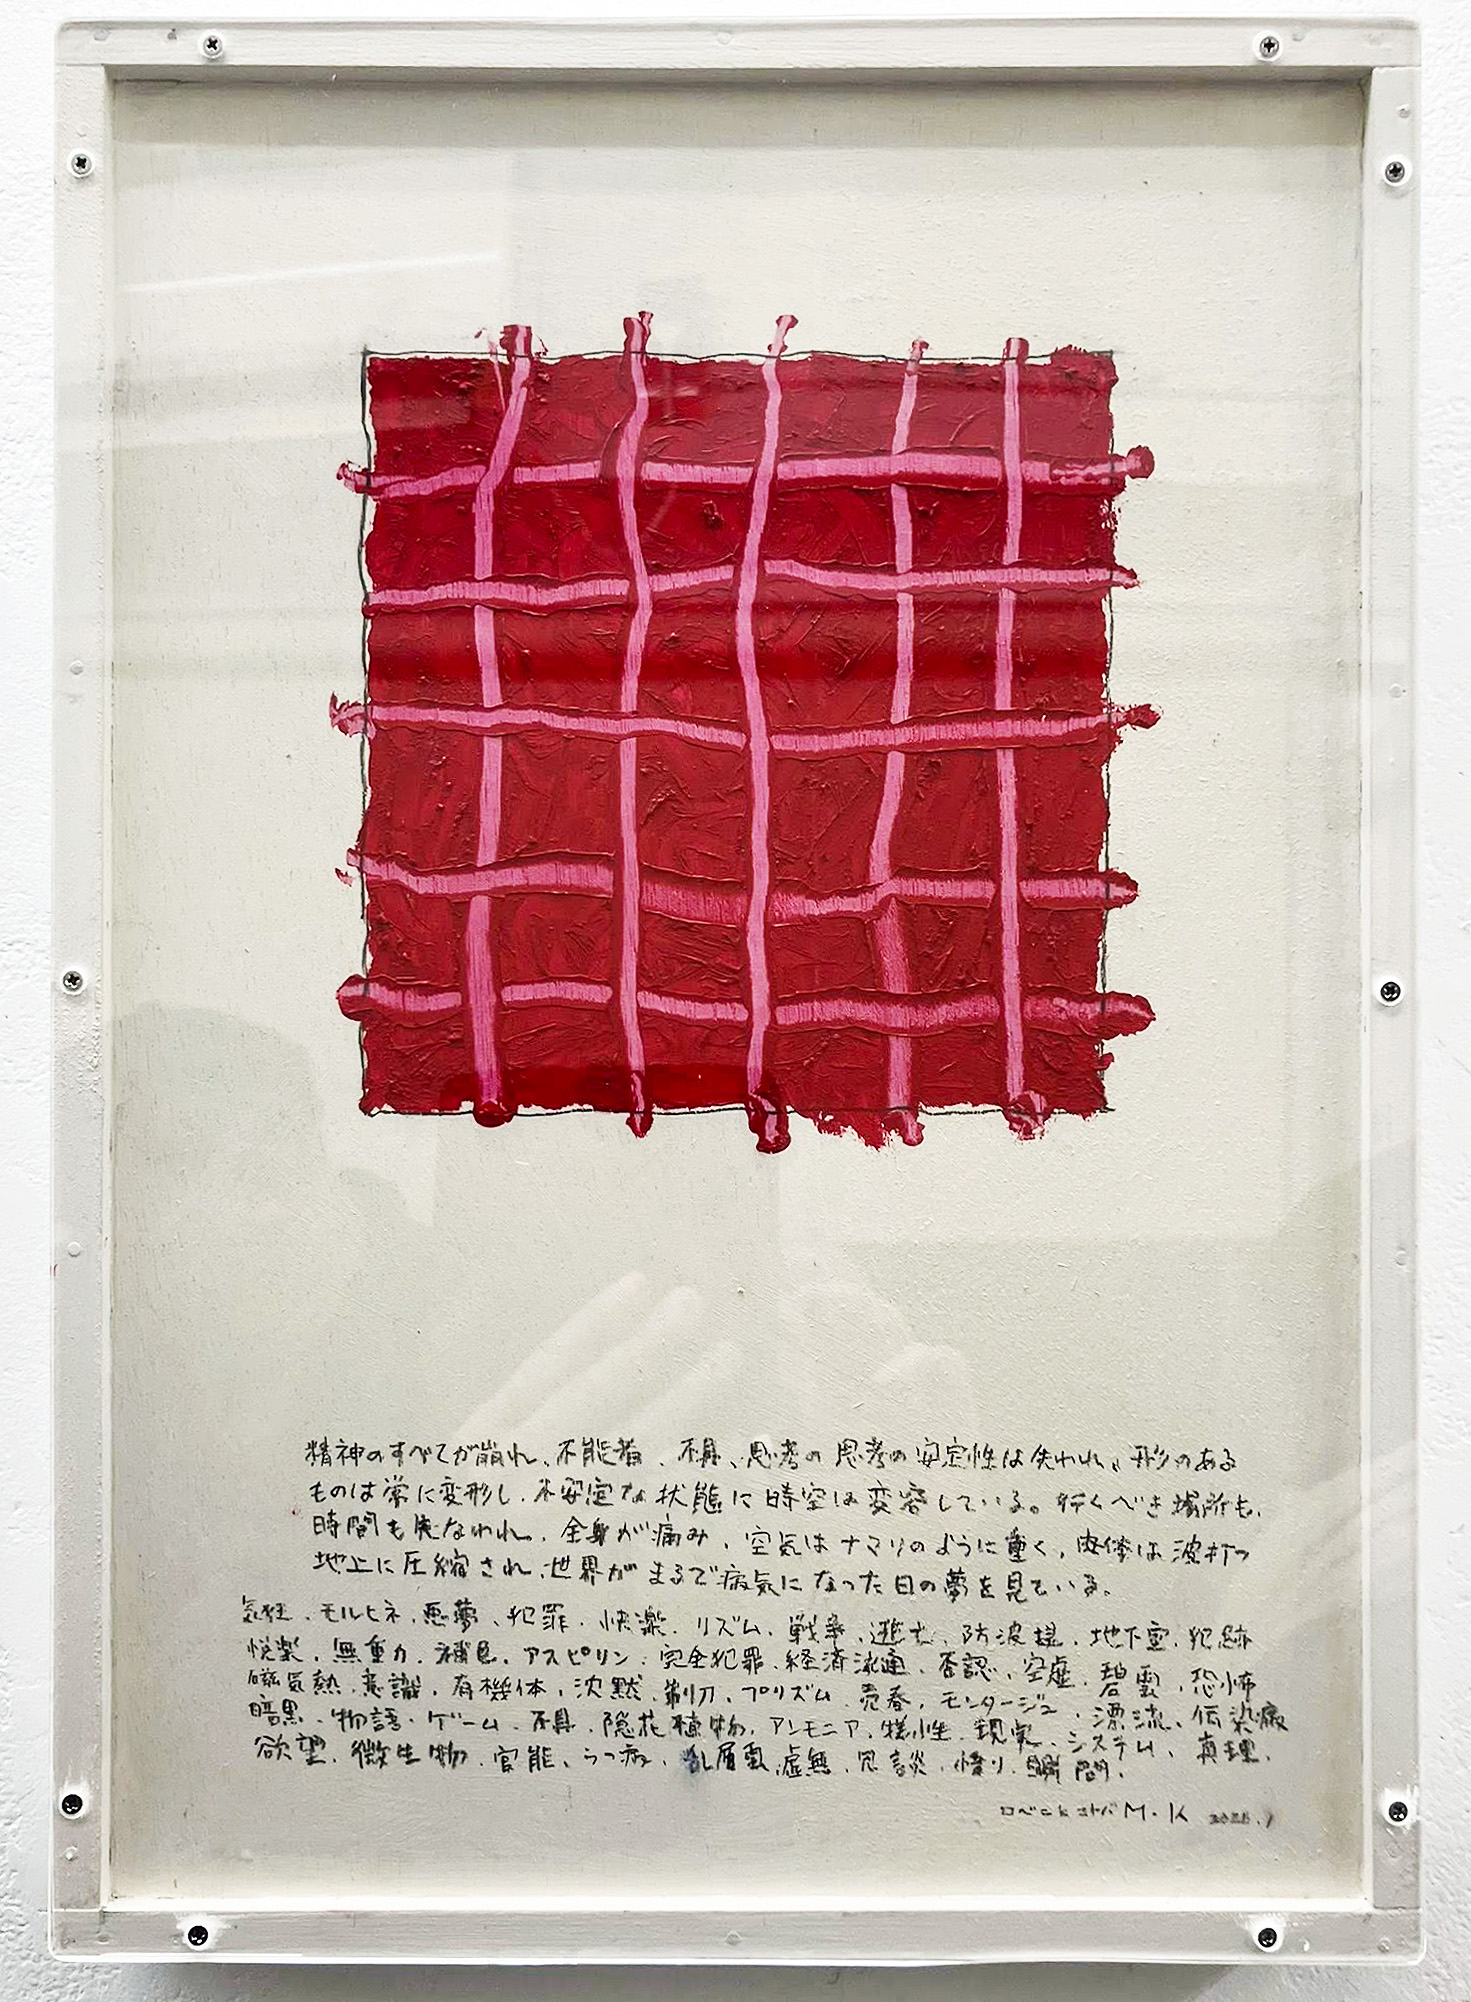 精神のすべてが崩れ、不能者、不具、思考の思考の安定性は失われ、形のある
ものは常に変形し、不安定な状態に時空は変容している。行くべき場所も、
時間も失なわれ、全身が痛み、空気はナマリのように重く、肉体は波打つ
地上に圧縮され、世界がまるで病気になった日の夢を見ている。
気狂、モルヒネ、悪夢、犯罪、快楽、リズム、戦争、逃亡、防波堤、地下室、犯跡
悦楽、無重力、補息、アスピリン、完全犯罪、経済流通、否認、空虚、碧雲、恐怖
磁気熱、意識、有機体、沈黙、剃刀、プリズム、売春、モンタージュ、漂流、伝染病
暗黒、物語、ゲーム、不具、隠花植物、アンモニア、犠牲、現実、システム、真理、
欲望、微生物、官能、うつ病、乱層雲、虚無、冗談、憎り、瞬間。
M・K